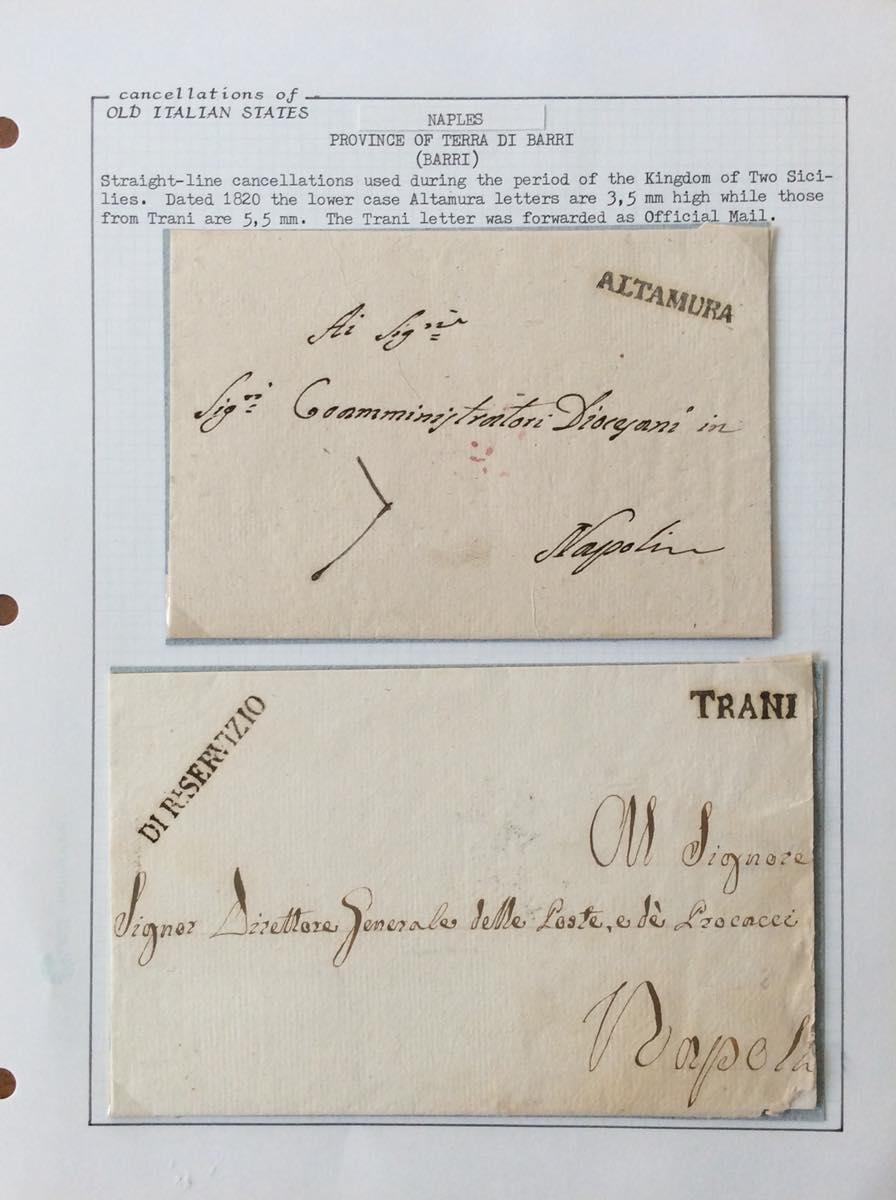 cancellations of
OLD ITALIAN STATES
NAPLES
PROVINCE OF TERRA DI BARRI
(BARRI)
Straight-line cancellations used during the period of the Kingdom of Two Sici-
lies. Dated 1820 the lower case Altamura letters are 3,5 mm high while those
from Trani are 5,5 mm. The Trani letter was forwarded as Official Mail.
ALTAMURA
Ai Sig.ri
Sig.ri Coamministratori Diocesani in
Napoli
TRANI
DI RL SERVIZIO
Al Signore
Signor Direttore Generale delle Poste, e dè Procacci
Napoli